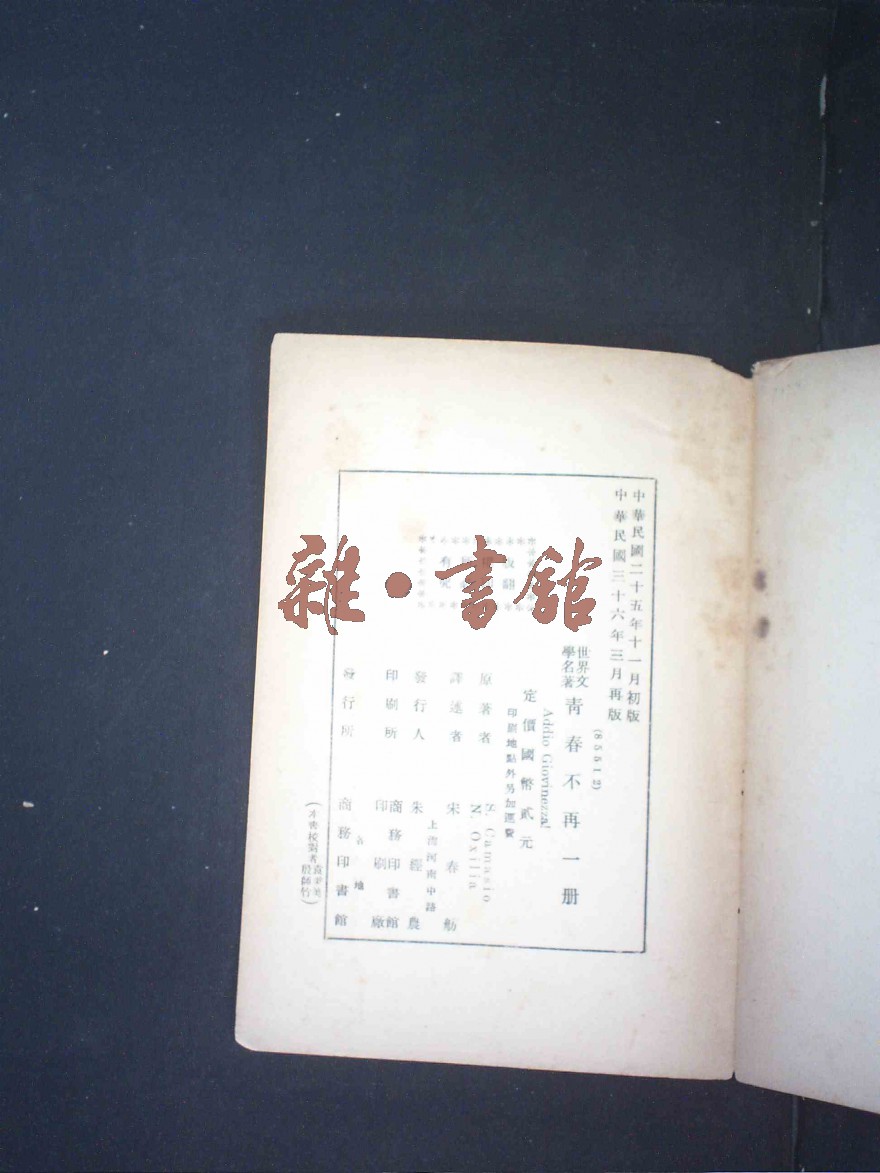 中華民國二十五年十一月初版
中華民國三十六年三月再版
(85512)
世界文學名著
青春不再一册
Addio Giovinezza!
定價國幣貳元
印刷地點外另加運費
原著者 S. Camasio
N. Oxilia
譯述者 宋春舫
發行人 朱經農
上海河南中路
印刷所 商務印書館印刷廠
發行所 各地 商務印書館
雜·書館